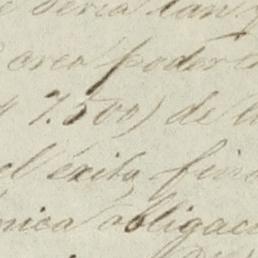 seria tan
creo poder
7.500) de
el éxito fin
nica obligac